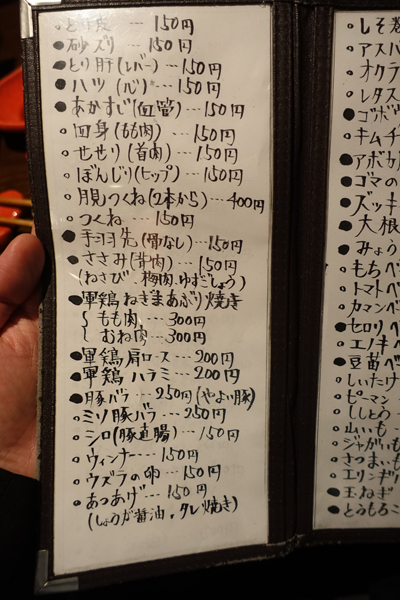 とり皮 --- 150円
●砂ズリ --- 150円
●とり肝(レバー) --- 150円
●ハツ(心) --- 150円
●あかすじ(血管) --- 150円
○四身(もも肉) --- 150円
○せせり(首肉) --- 150円
○ぼんじり(ヒップ) --- 150円
○月見つくね(2本から) --- 400円
○つくね --- 150円
●手羽先(骨なし) --- 150円
●ささみ(背肉) --- 150円
(わさび、梅肉、ゆずこしょう)
●軍鶏ねぎまあぶり焼き
もも肉 --- 300円
むね肉 --- 300円
●軍鶏 肩ロース --- 200円
●軍鶏 ハラミ --- 200円
●豚バラ --- 250円(やよい豚)
○ミソ豚バラ --- 250円
○シロ(豚直腸) --- 150円
○ウィンナー --- 150円
○ウズラの卵 --- 150円
○あつあげ --- 150円
(しょうが醤油、タレ焼き)
○しそ巻
○アスパ
○オクラ
○レタス
●ゴボウ
○キムチ
●アボカ
●ゴマの
●ズッキ
●大根
●みょう
○もちベ
○トマトベ
○カマンベ
●セロリベ
○エノキベ
●豆苗ベ
○しいたけ
○ピーマン
○ししとう
○山いも
○ジャがいも
○さつまいも
○エリンギ
●玉ねぎ
●とうもろこ